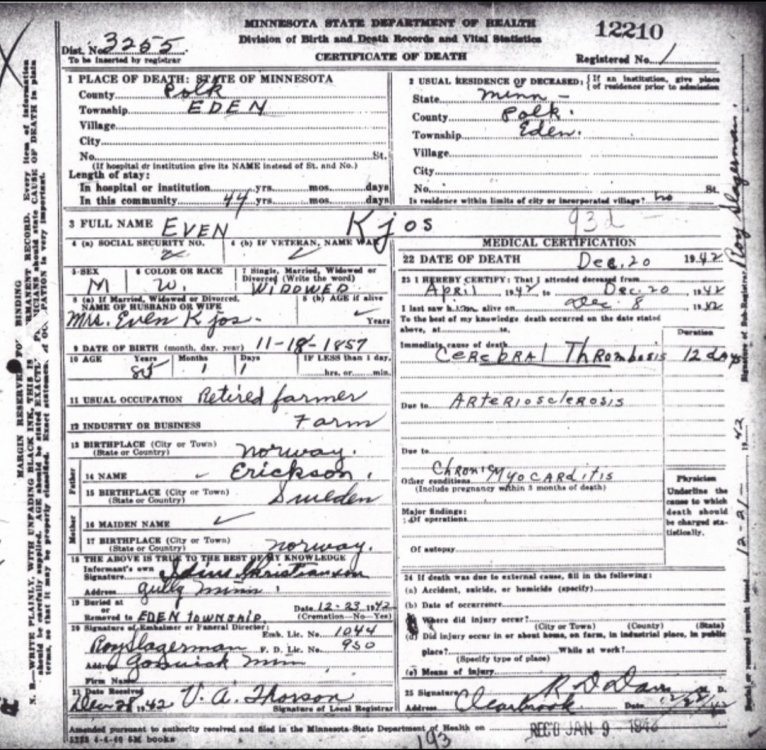 MINNESOTA STATE DEPARTMENT OF HEALTH
Division of Birth and Death Records and Vital Statistics
12210
Dist. No. 3255
To be inserted by registrar
CERTIFICATE OF DEATH
Registered No. 1
1 PLACE OF DEATH: STATE OF MINNESOTA
County Polk
Township EDEN
Village
City
No. St.
(If hospital or institution give its NAME instead of St. and No.)
Length of stay:
In hospital or institution yrs. mos. days
In this community 44 yrs. mos. days
2 USUAL RESIDENCE OF DECEASED: (If an institution, give place of residence prior to admission
State Minn -
County Polk.
Township Eden.
Village
City
No. St.
Is residence within limits of city or incorporated village? no
3 FULL NAME EVEN Kjos
93d -
4 (a) SOCIAL SECURITY NO.
4 (b) IF VETERAN, NAME WAR
5 SEX M
6 COLOR OR RACE W.
7 Single, Married, Widowed or Divorced (Write the word) WIDOWED
8 (a) If Married, Widowed or Divorced.
NAME OF HUSBAND OR WIFE
Mrs. Even Kjos-
8 (b) AGE if alive
Years
9 DATE OF BIRTH (month, day, year) 11-18-1857
10 AGE Years Months Days IF LESS than 1 day,
85 1 1 hrs. or min.
11 USUAL OCCUPATION Retired farmer
12 INDUSTRY OR BUSINESS Farm
13 BIRTHPLACE (City or Town)
(State or Country) Norway.
Father
14 NAME Erickson.
15 BIRTHPLACE (City or Town)
(State or Country) Sweden
Mother
16 MAIDEN NAME
17 BIRTHPLACE (City or Town)
(State or Country) Norway.
18 THE ABOVE IS TRUE TO THE BEST OF MY KNOWLEDGE
Informant's own
Signature Christianson
Address Gully Minn
19 Buried at
or
Removed to EDEN TOWNSHIP Date 12-23 1942
(Cremation—No—Yes)
20 Signature of Embalmer or Funeral Director:
Emb. Lic. No. 1044
Roy Slagerman F. D. Lic. No. 950
Address Gonvick Minn
Firm Name
21 Date Received
Dec 28, 42 V. A. Thorson
Signature of Local Registrar
MEDICAL CERTIFICATION
22 DATE OF DEATH Dec. 20 1942
23 I HEREBY CERTIFY: That I attended deceased from
April 1942 to Dec. 20 1942
I last saw him alive on Dec 8 1942
To the best of my knowledge death occurred on the date stated
above, at m.
Duration
Immediate cause of death
CEREBRAL THROMBOSIS 12 days
Due to ARTERIOSCLEROSIS
Due to
Other conditions CHRONIC MYOCARDITIS
(Include pregnancy within 3 months of death)
Major findings:
Of operations
Of autopsy
Physician
Underline the cause to which death should be charged statistically.
24 If death was due to external cause, fill in the following:
(a) Accident, suicide, or homicide (specify)
(b) Date of occurrence
Where did injury occur?
(City or Town) (County) (State)
(d) Did injury occur in or about home, on farm, in industrial place, in public
place? While at work?
(Specify type of place)
(e) Means of injury
25 Signature M. D.
Address Clearbrook Date
Amended pursuant to authority received and filed in the Minnesota State Department of Health on
REC'D JAN 9 - 1943
193
MARGIN RESERVED FOR BINDING
12-21- 1942
Signature of Sub-Registrar Roy Slagerman